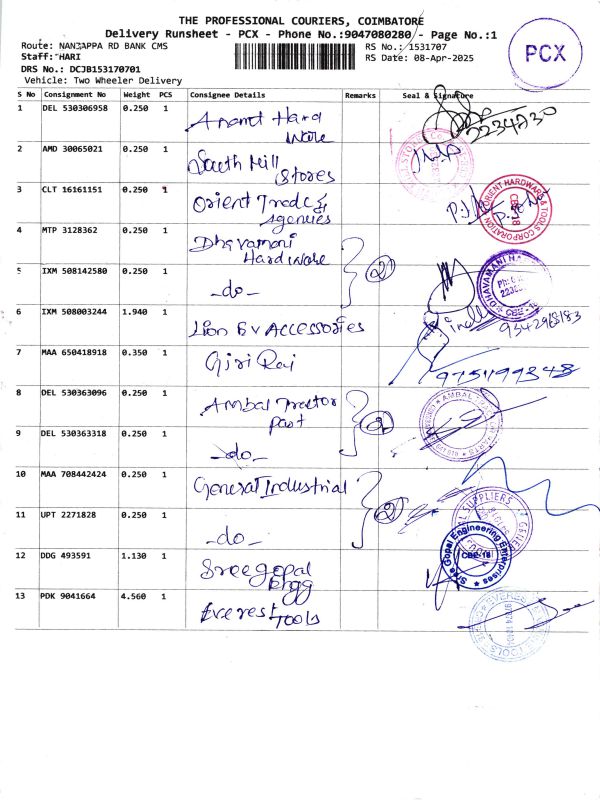 THE PROFESSIONAL COURIERS, COIMBATORE
Delivery Runsheet - PCX - Phone No.:9047080280 - Page No.:1
Route: NANJAPPA RD BANK CMS
RS No.: 1531707
Staff: HARI
RS Date: 08-Apr-2025
DRS No.: DCJB153170701
Vehicle: Two Wheeler Delivery
PCX
S No Consignment No Weight PCS Consignee Details Remarks Seal & Signature
1 DEL 530306958 0.250 1 Anand Hard
ware
2234730
2 AMD 30065021 0.250 1 South Mill
Stores
3 CLT 16161151 0.250 1 Orient Trade &
Agencies
ORIENT HARDWARE & TOOLS CORPORATION
CBE-18
4 MTP 3128362 0.250 1 Dhavamani
Hardware
2
5 IXM 508142580 0.250 1 -do-
DHAVAMANI HA
CBE-18
6 IXM 508003244 1.940 1 Lion Ev ACCESSORIES
9342968183
7 MAA 650418918 0.350 1 Giri Raj
9751499348
8 DEL 530363096 0.250 1 Ambal Tractor
Part
2
AMBAL
9 DEL 530363318 0.250 1 -do-
10 MAA 708442424 0.250 1 General Industrial
2
SUPPLIERS
11 UPT 2271828 0.250 1 -do-
12 DDG 493591 1.130 1 Sree gopal
Engg
Sree Gopal Engineering Enterprises
CBE-18
13 PDK 9041664 4.560 1 Everest
Tools